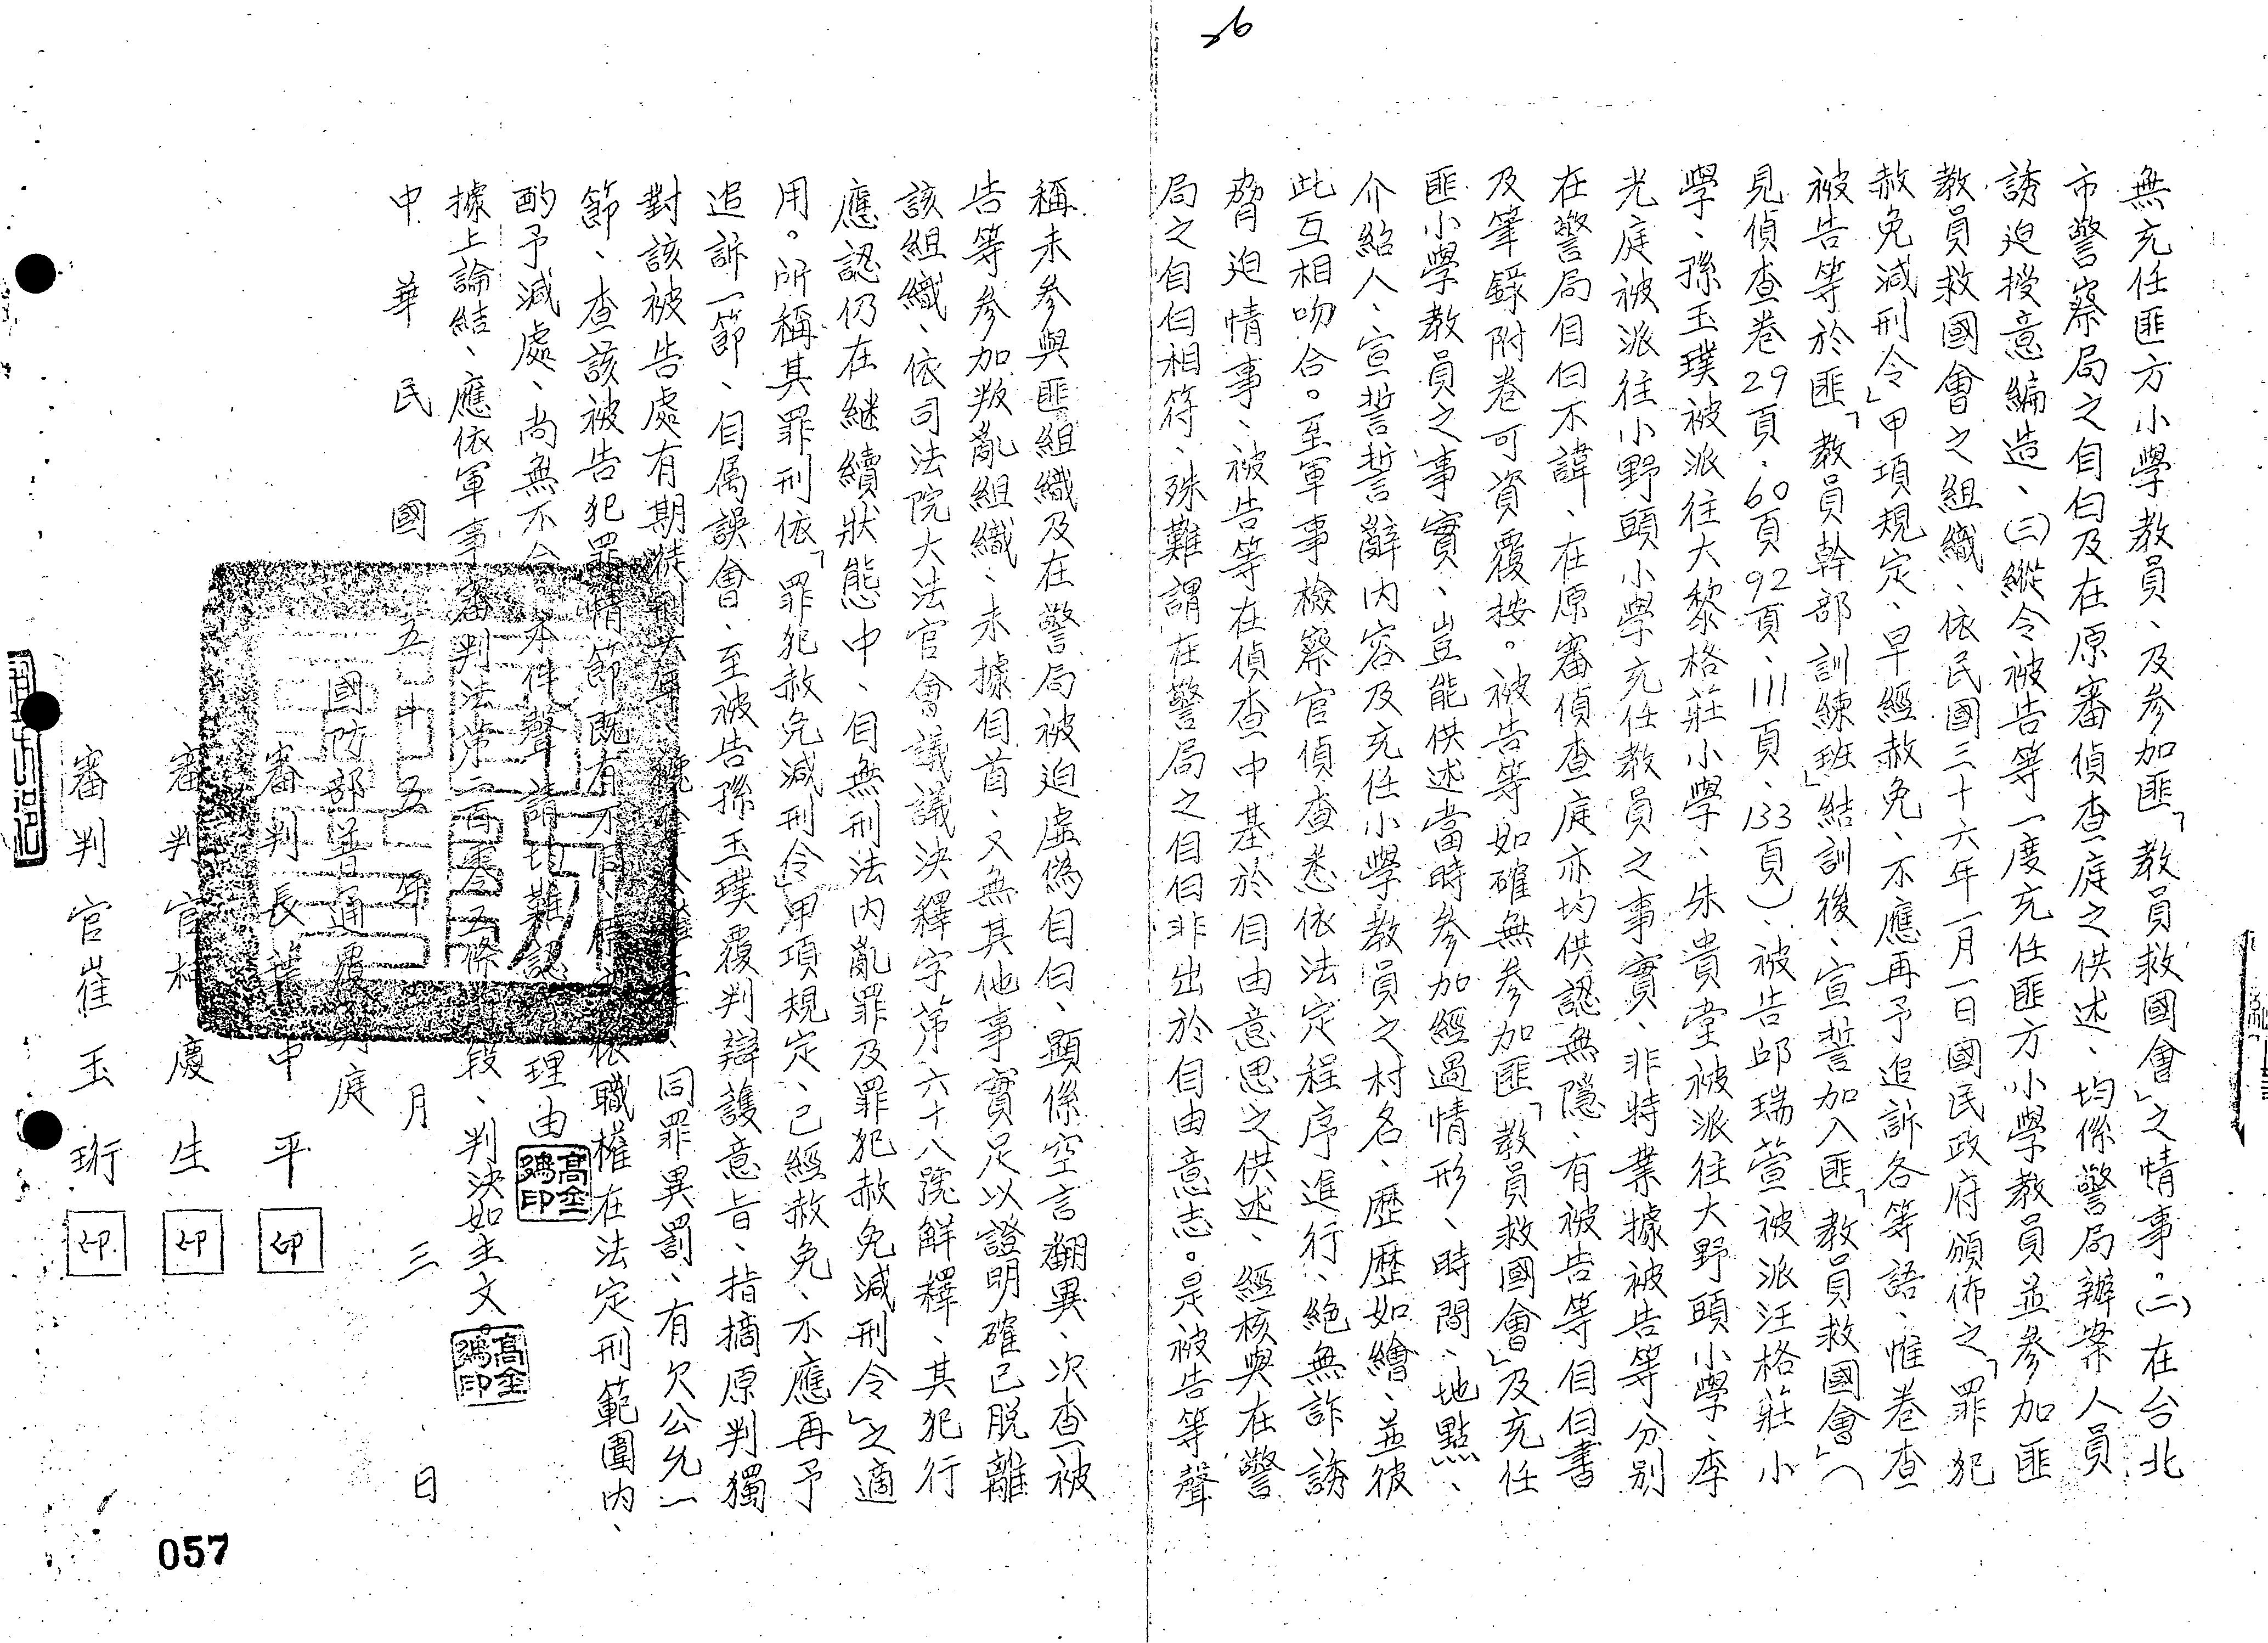 26
無充任匪方小學教員、及參加匪「教員救國會」之情事。(二)在台北
市警察局之自白及在原審偵查庭之供述、均係警局辦案人員
誘迫授意編造、(三)縱令被告等一度充任匪方小學教員並參加匪
教員救國會之組織、依民國三十六年一月一日國民政府頒佈之「罪犯
赦免減刑令」甲項規定、早經赦免、不應再予追訴各等語、惟卷查
被告等於匪「教員幹部訓練班」結訓後、宣誓加入匪「教員救國會」(
見偵查卷29頁.60頁92頁、111頁、133頁)、被告邱瑞萱被派汪格莊小
學、孫玉璞被派往大黎格莊小學、朱貴堂被派往大野頭小學、李
光庭被派往小野頭小學充任教員之事實、非特業據被告等分別
在警局自白不諱、在原審偵查庭亦均供認無隱、有被告等自白書
及筆錄附卷可資覆按。被告等如確無參加匪「教員救國會」及充任
匪小學教員之事實、豈能供述當時參加經過情形、時間、地點、
介紹人、宣誓誓辭內容及充任小學教員之村名、歷歷如繪、並彼
此互相吻合。至軍事檢察官偵查悉依法定程序進行、絕無詐誘
脅迫情事、被告等在偵查中基於自由意思之供述、經核與在警
局之自白相符、殊難謂在警局之自白非出於自由意志。是被告等聲
稱未參與匪組織及在警局被迫虛偽自白、顯係空言翻異、次查被
告等參加叛亂組織、未據自首、又無其他事實足以證明確已脫離
該組織、依司法院大法官會議議決釋字第六十八號解釋、其犯行
應認仍在繼續狀態中、自無刑法內亂罪及罪犯赦免減刑令」之適
用。所稱其罪刑依「罪犯赦免減刑令」甲項規定、已經赦免、不應再予
追訴一節、自属誤會、至被告孫玉璞覆判辯護意旨、指摘原判獨
對該被告處有期徒刑 、同罪異罰、有欠公允一
節、查該被告犯罪情節既有不同、原 依職權在法定刑範圍內、
酌予減處、尚無不合。本件聲請均難認 理由
高金鴻印
據上論結、應依軍事審判法第二百零五條前段、判決如主文。
高金鴻印
中華民國五十五年 月 三 日
國防部普通覆判庭
審判長葉中平 印
審判官 慶生 印
審判官崔玉珩 印
057